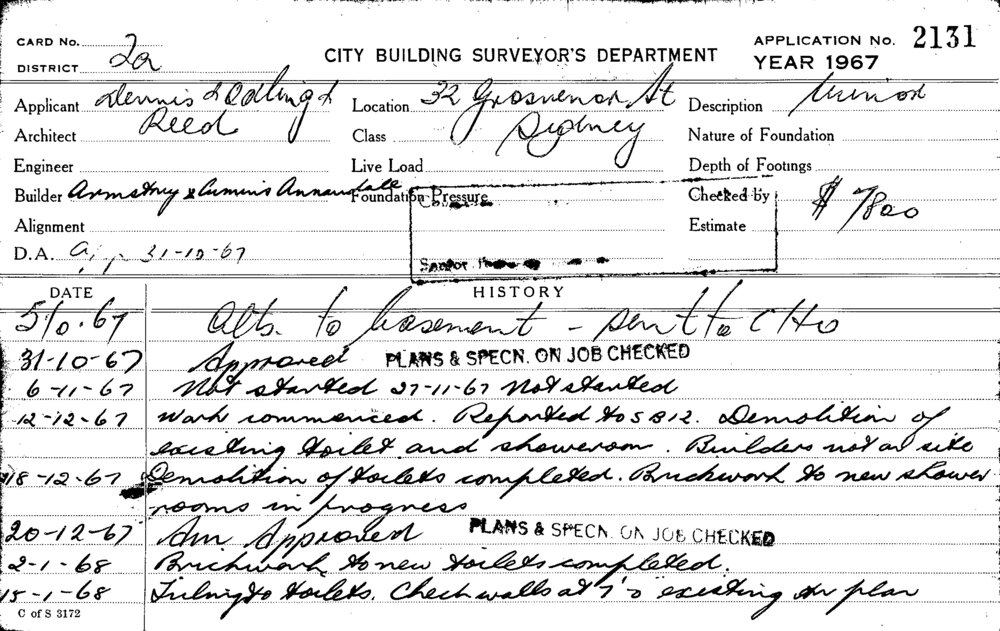 CARD No. 2a
DISTRICT
CITY BUILDING SURVEYOR'S DEPARTMENT
APPLICATION No. 2131
YEAR 1967
Applicant Dennis & Odling &
Reed
Architect
Engineer
Builder Armstrong & Annandale
Alignment
D.A. 31-10-67
Location 32 Grosvenor St
Sydney
Class
Live Load
Foundation Pressure
Description
Nature of Foundation
Depth of Footings
Checked by
Estimate $ 7800
DATE HISTORY
5/10.67 Alts. to basement - sent to CHO
31-10-67 Approved PLANS & SPECN. ON JOB CHECKED
6-11-67 Not started 27-11-67 Not started
12-12-67 Work commenced. Reported to SB12. Demolition of
existing toilet and showeroom. Builders not on site
18-12-67 Demolition of toilets completed. Brickwork to new shower
rooms in progress
20-12-67 Am. Approved PLANS & SPECN. ON JOB CHECKED
2-1-68 Brickwork to new toilets completed.
15-1-68 to toilets. Check walls at 7'-0 existing on plan
C of S 3172